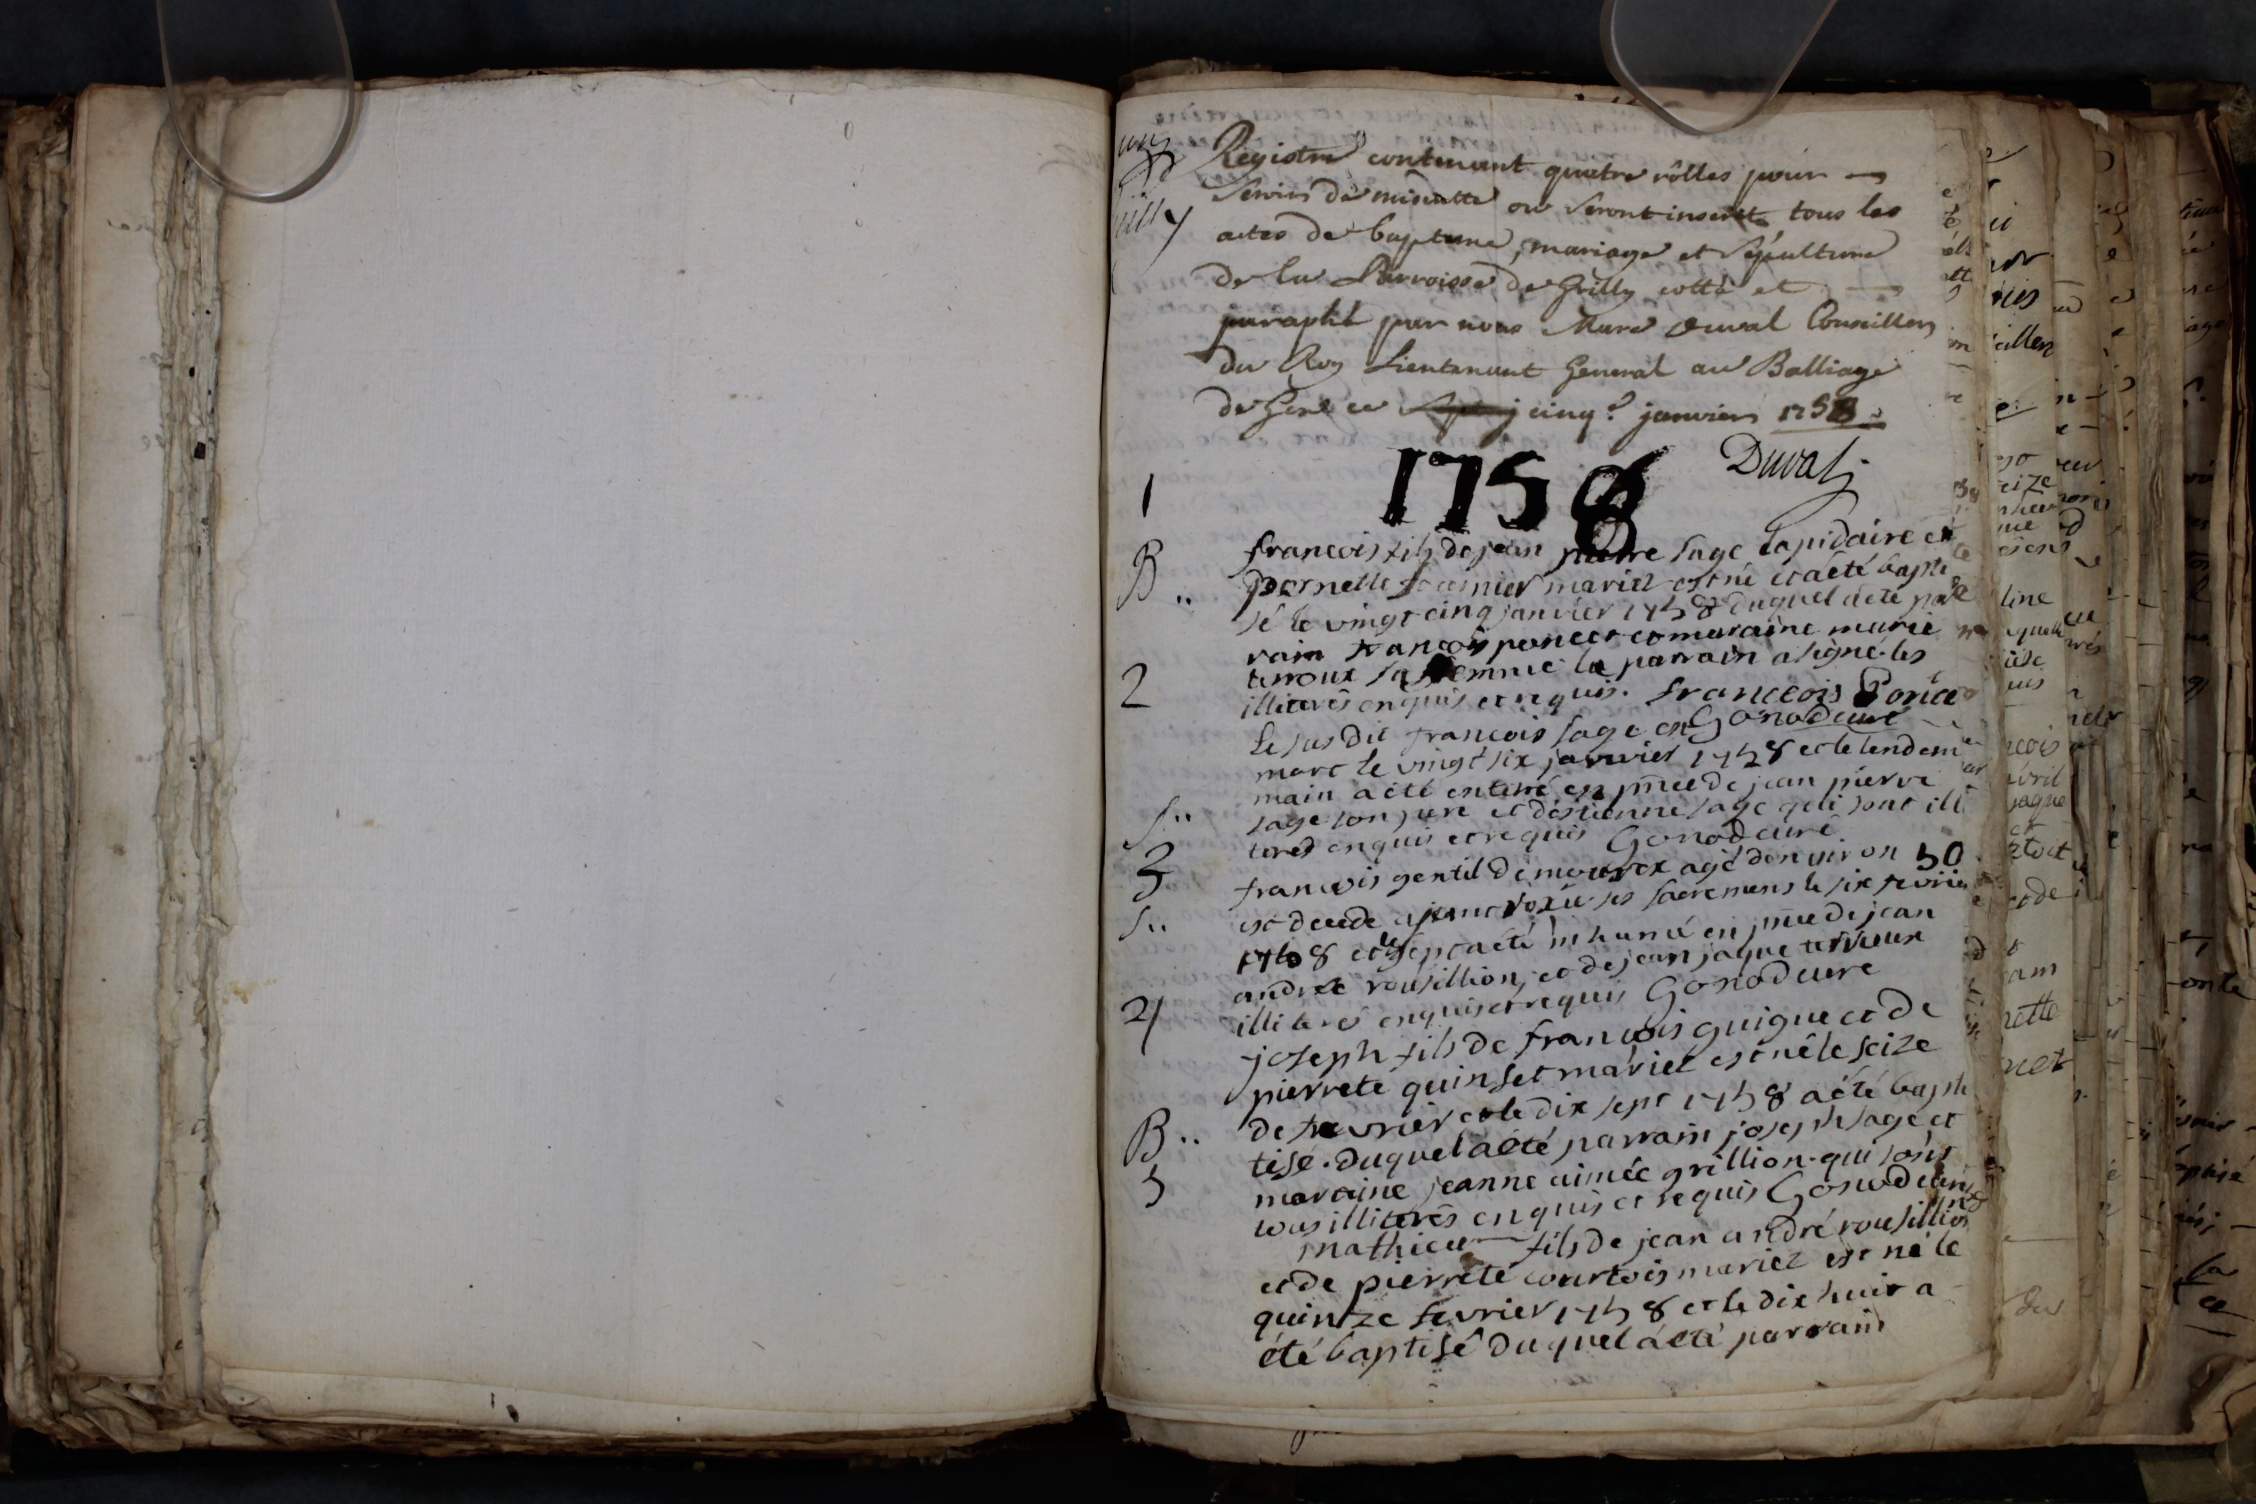 Registre contenant quatre rôlles pour
servir de minutte ou seront inserit tous les
actes de baptême, mariage et sépulture
de la Parroisse de Grilly cotté et
paraphé par nous Marc Duval Conseiller
du Roy Lieutenant General au Balliage
de Gex ce cinq.e janvier 1758
Duval
1
1758
B..
francois fils de jean pierre sage lapidaire et
pernette fournier mariez est né et a été bapti
sé le vingt cinq janvier 1758 duquel a été par
rain francois poncet et maraine marie
terroux sa femme le parrain a signé les
2
illiterés enquis et requis. franceois Ponce
Gonod curé
le sus dit francois sage est
mort le vingt six janvier 1758 et le lende
main a été enterré en pñce de jean pierre
S..
sage son pere et d'estienne sage qui sont illi
terés enquis et requis Gonod curé
3
francois gentil de mourex agé d'environ 50
S..
est decedé ayant reçu ses sacremens le six fevrier
1758 et le sept a été inhumé en pñce de jean
andré rousillion, et de jean jaque terroux
illiterés enquis et requis Gonod curé
4
joseph fils de francois guigue et de
pierrete quinset mariez est né le seize
de fevrier et le dix sept 1758 a été bapti
B..
tisé. duquel a été parrain joseph sage et
5
maraine jeanne aimée grillion. qui sont
tous illiterés enquis et requis Gonod curé
mathieu fils de jean andré rousillion
et de pierrete courtois mariez est né le
quinze fevrier 1758 et le dix huit a
été baptisé duquel a été parrain